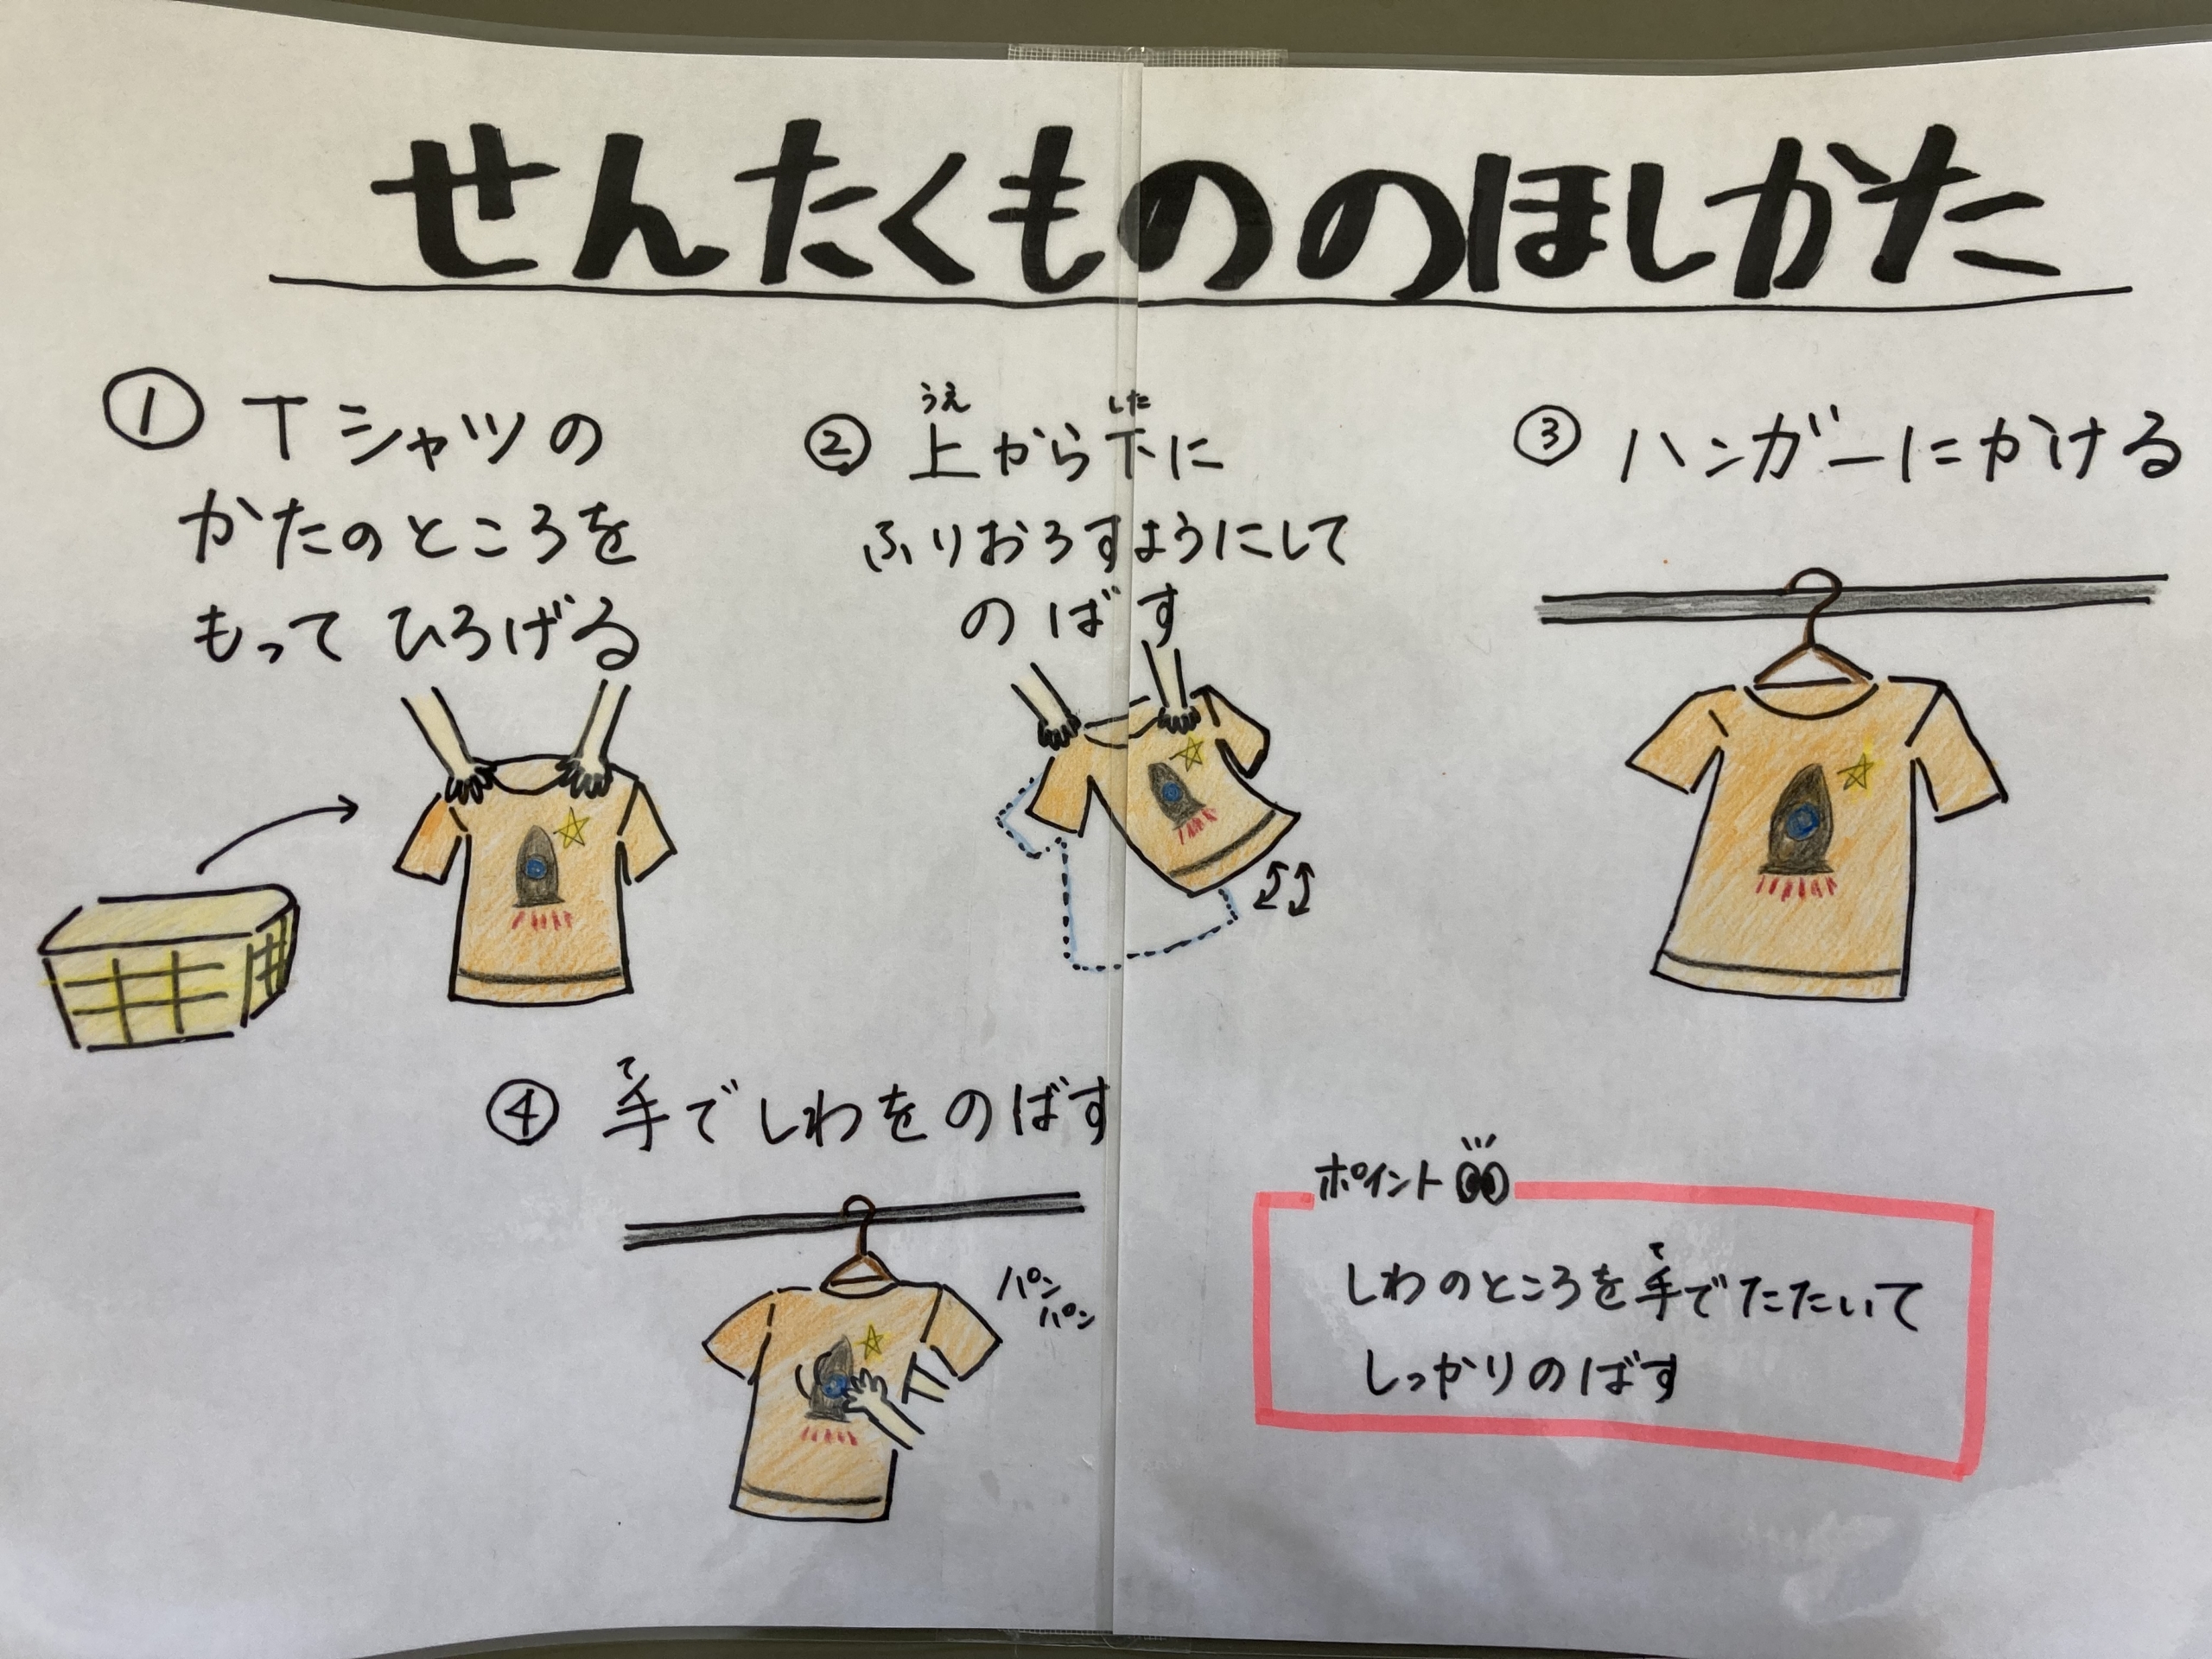 せんたくもののほしかた
① Tシャツの
かたのところを
もって ひろげる
うえ した
② 上から下に
ふりおろすようにして
のばす
③ ハンガーにかける
て
④ 手でしわをのばす
パン
パン
ポイント
て
しわのところを手でたたいて
しっかりのばす